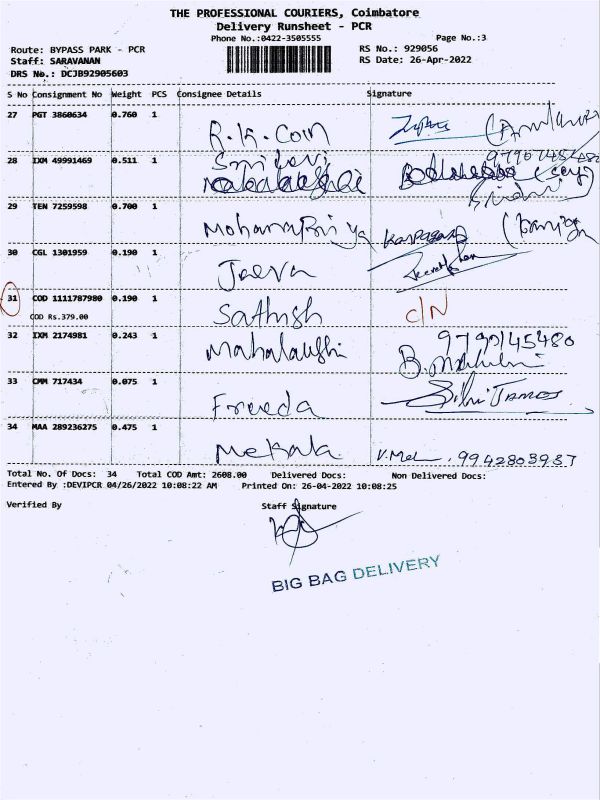 THE PROFESSIONAL COURIERS, Coimbatore
Delivery Runsheet - PCR
Phone No.:0422-3505555 Page No.:3
Route: BYPASS PARK - PCR RS No.: 929056
Staff: SARAVANAN RS Date: 26-Apr-2022
DRS No.: DCJB92905603
S No Consignment No Weight PCS Consignee Details Signature
27 PGT 3860634 0.760 1
R.K. Coin
28 IXM 49991469 0.511 1 Sridevi
29 TEN 7259598 0.700 1
Mohanapriya
30 CGL 1301959 0.190 1
Jeeva
31 COD 1111787980 0.190 1
COD Rs.379.00 Sathish C/N
32 IXM 2174981 0.243 1 9790145480
33 CMM 717434 0.075 1
Freeda
34 MAA 289236275 0.475 1
Mekala 9942803937
Total No. Of Docs: 34 Total COD Amt: 2608.00 Delivered Docs: Non Delivered Docs:
Entered By :DEVIPCR 04/26/2022 10:08:22 AM Printed On: 26-04-2022 10:08:25
Verified By Staff Signature
BIG BAG DELIVERY